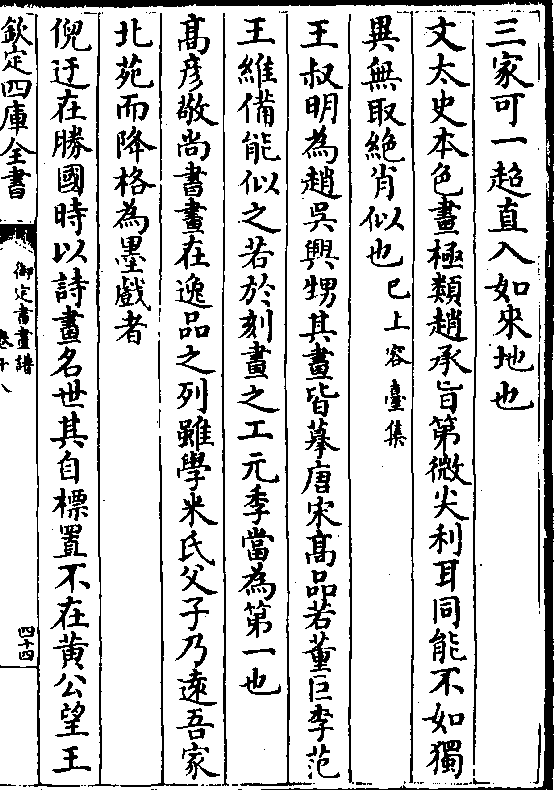 三家可一超直入如來地也
文太史本色畫極類趙承旨第微尖利耳同能不如獨
異無取絶肖似也已上容臺集
王叔明為趙吳興甥其畫皆摹唐宋髙品若董巨李范
王維備能似之若於刻畫之工元季當為第一也
髙彦敬尚書畫在逸品之列雖學米氏父子乃遠吾家
北苑而降格為墨戲者
倪迂在勝國時以詩畫名世其自標置不在黄公望王
欽定四庫全書
御定書畫譜
卷十八
四十四